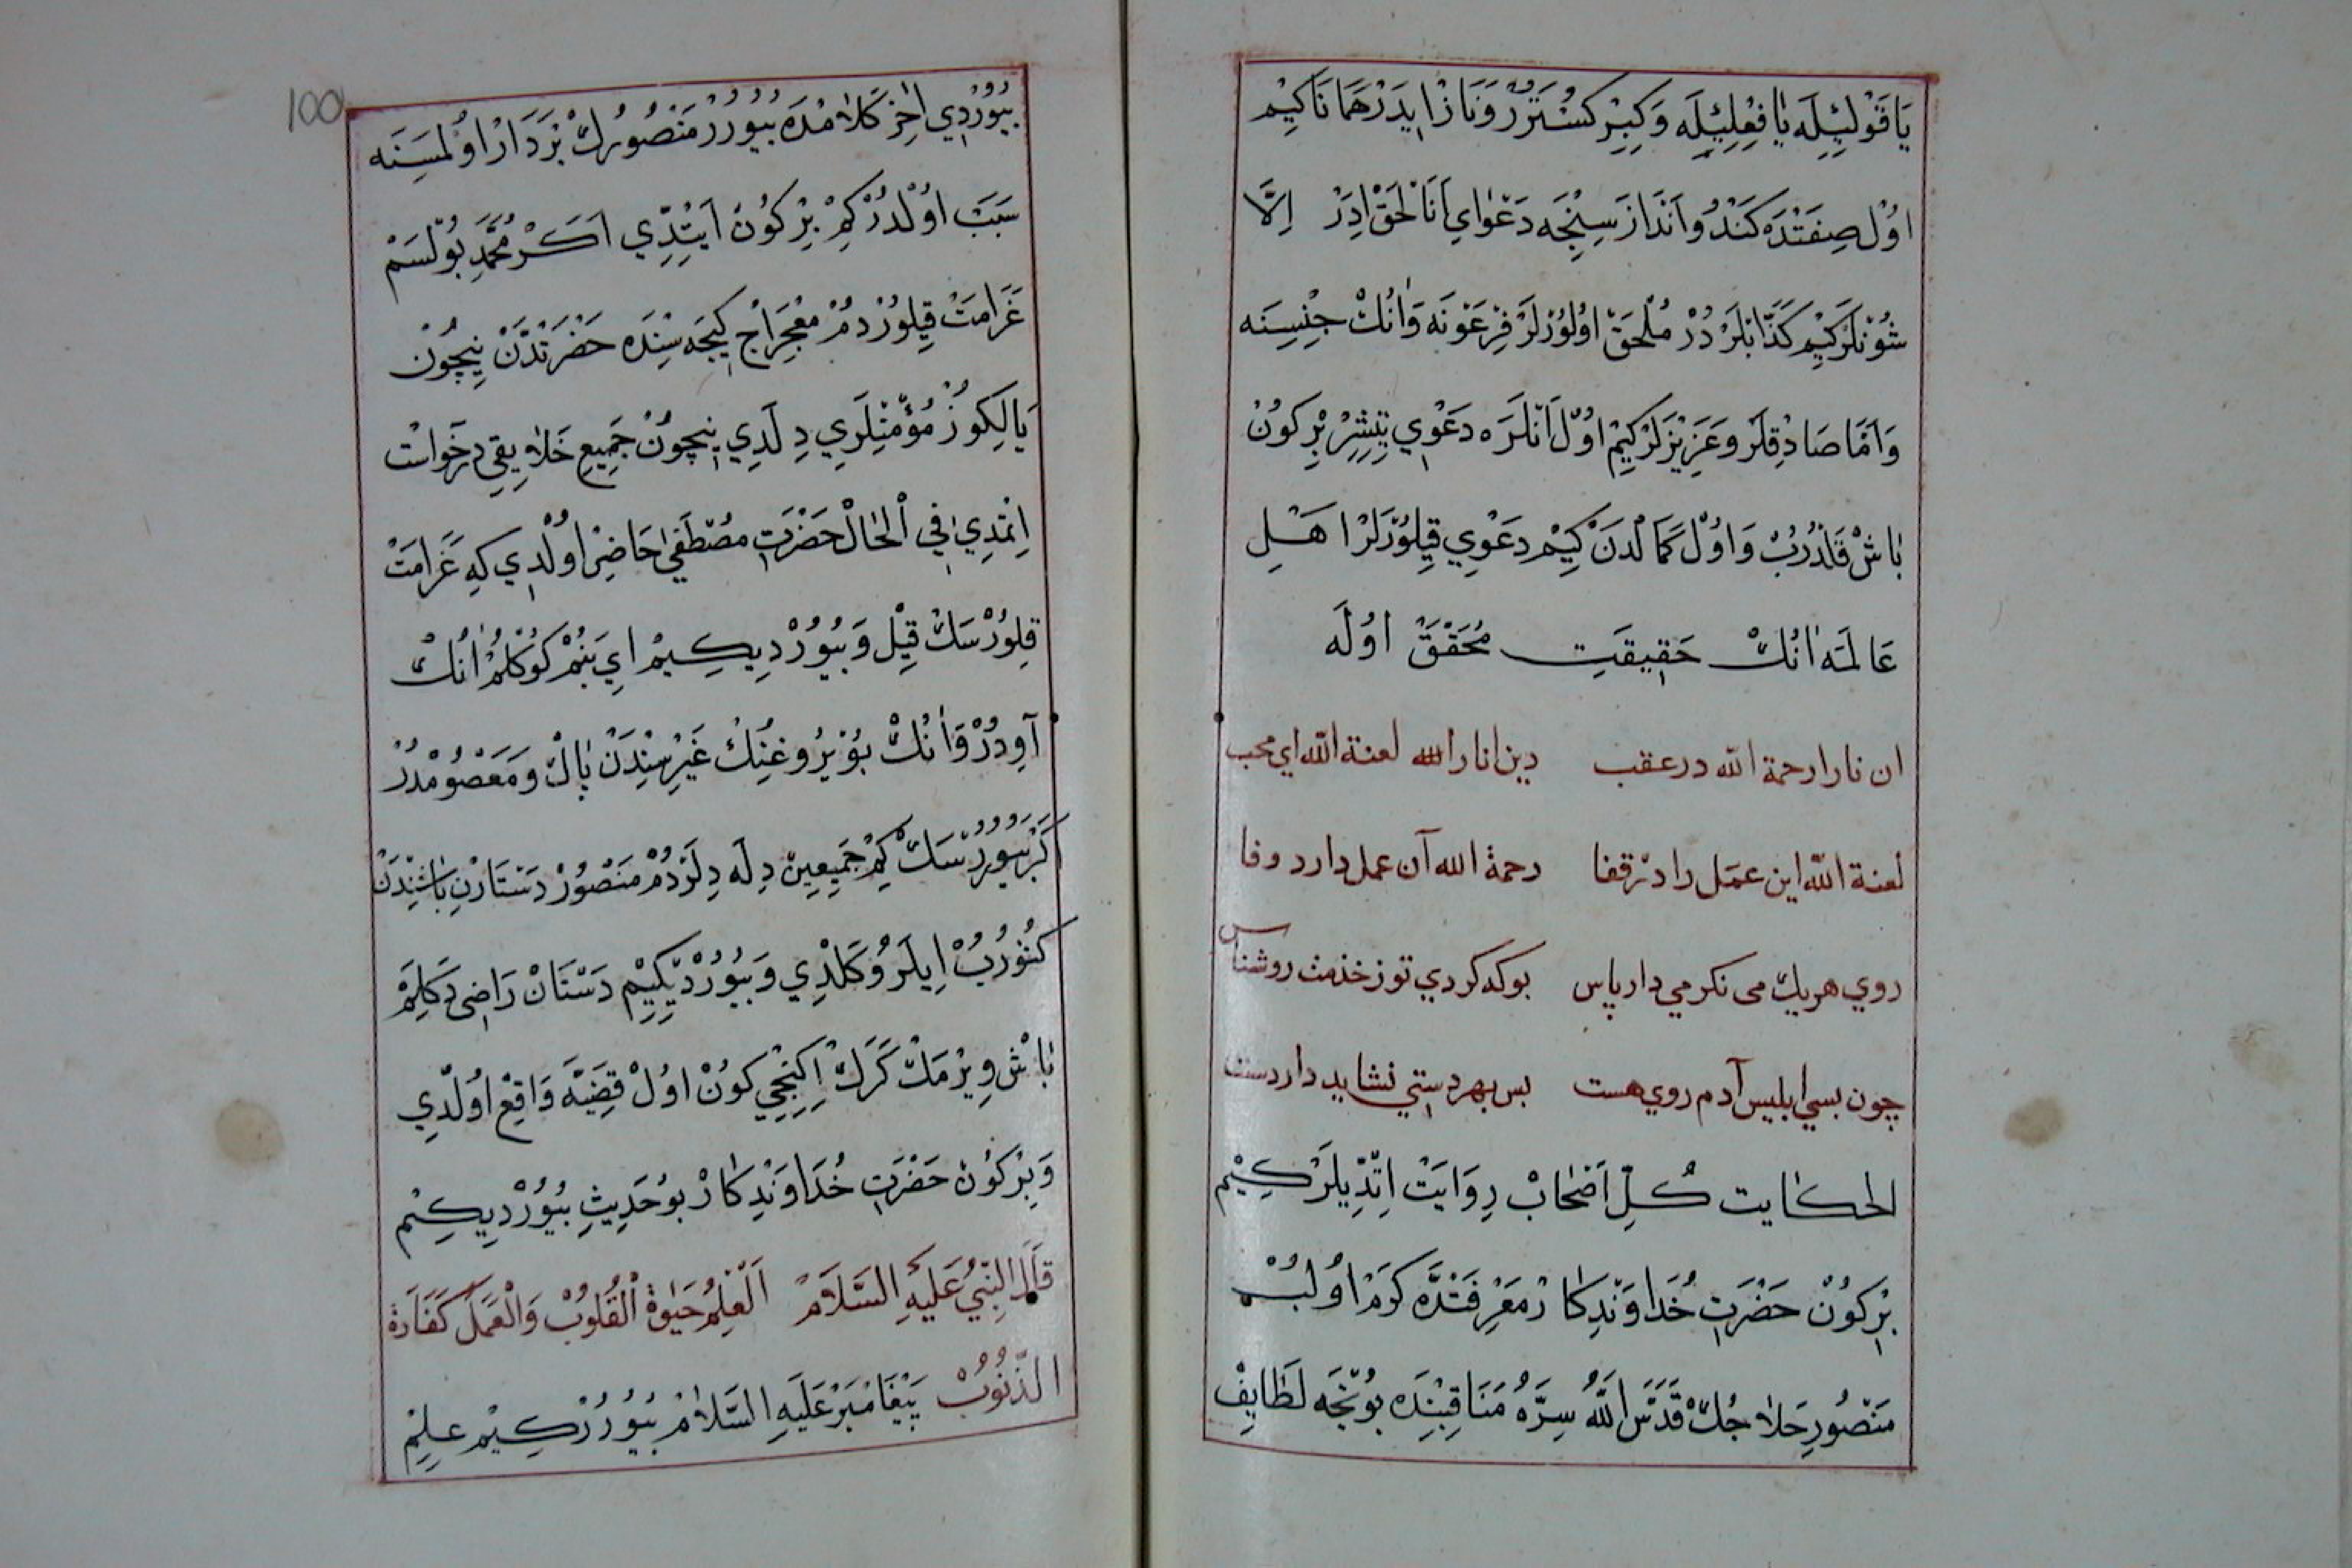 يَا قَوْلِيٖلَه يَا فِعْلِيٖلَه وَكِبِرْ كُسْتَرُرْ وَنَازْ اِيدَرْ هَمَانَا كِيْم
اوُلْ صِفَتْدَه كَنْدُو اَنْدَازَسِنْجَه دَعْوَايِ اَنَا لْحَقْ اِدَرْ اِلَّا
شُونْلَرْ كِيْم كَذَّابْلَرْ دُرْ مُلْحَقْ اوُلوُرْلَرْ فِرْعَوْنَه وَاَنُكْ جِنْسِنَه
وَاَمَّا صَادِقْلَرْ وَعَزِيزْلَرْ كِيْم اوُلْ اَنْلَرَه دَعْوِي يَتِشِرْ بِرْ كوُنْ
بَاشْ قَلْدُرُبْ وَاوُلْ كَمَالْدَنْ كِيْم دَعْوِي قِيلوُرْلَرْ اهَلِ
عَالمَه اَنُكْ حَقِيقَتِ مُحَقَّقْ اوُلَه
ان نارا رحمة الله در عقب دين انا را لعنة الله اى محب
لعنة الله اين عمَل را در قفا رحمة الله آن عمل دارد وفا
روي هر يك مى نكر مي دار پاس بوكه كردي تو ز خذمت روشناس
چون بسي ابليس آدم روي هست بس بهر دستي نشايد دار دست
الحكايت كُلِّ اَصْحَابْ رِوَايَتْ اِتْدِيلَرْ كِيْم
بِرْ كوُنْ حَضْرَتِ خُدَاوَنْدِكَارْ مَعْرِفَتْدَه كَرَمْ اوُلُبْ
مَنْصُورِ حَلاجُكْ قَدَّسَ اللّٰهُ سِرَّهُ مَنَاقِبْنِدَه بوُنْجَه لَطَايِفْ
بُيوُرْدِي اخِرْ كَلَامْدَه بُيوُرُرْ مَنْصُورُكْ بَرْدَارْ اوُلْمَسِنَه
سَبَبْ اوُلْدُرْ كِمْ بِرْ كوُنْ اَيْتْدِي اَكَرْ مُحَمَّدِ بوُلْسَمْ
غَرَامَتْ قِيلوُرْدُمْ مِعْرَاجْ كِيجَه سِنْدَه حَضْرَتْدَنْ نِيچُونْ
يَالِكوُزْ مُؤْمِنْلَرِي دِلَدِي نِيچُونْ جَمِيعِ خَلَايِقِى دَرْخَواسْتْ
اِتْمَدِي فِي اْلحَالْ حَضْرَتِ مُصْطَفَى حَاضِرْ اوُلْدِي كِه غَرَامَتْ
قِلوُرْسَكْ قِيْل وَبُيوُرْدِيكِيْم اي بَنُمْ كوُكْلُمْ اَنُكْ
آوِدُرْ وَاَنُكْ بوُيْرُوغِنُكْ غَيْرِسِنْدَنْ پَاكْ وَمَعْصُومْدُرْ
كَرْ بُيوُرْسَكْ كِمْ جَمِيعِينْ دِلَه دِلَرْدُمْ مَنْصُورْ دَسْتَارِنْ بَاشِنْدَنْ
كُتُورُبْ اِيلَرُو كَلْدِي وَبُيوُرْدِيكِيْم دَسْتَانْ رَاضِى دَكِلَمْ
بَاشْ وِيرْمَكْ كَرَكْ اِكِنْجِي كوُنْ اوُلْ قِضَيَّه وَاقِعْ اوُلْدِي
وَبِرْ كوُنْ حَضْرَتِ خُدَاوَنْدِكَارْ بوُ حَدِيثِ بُيوُرْدِيكِيْم
قَالَ النَّبِيُّ عَلَيْهِ السَّلَامُ اَلْعِلْمُ حَيوٰةُ اْلقُلُوُبْ وَالْعَمَلُ كَفَّارَةُ
الذُّنُوُبْ پَيْغَامْبَرْ عَلَيْهِ السَّلَامْ بُيوُرُرْكِيْم عِلِمْ